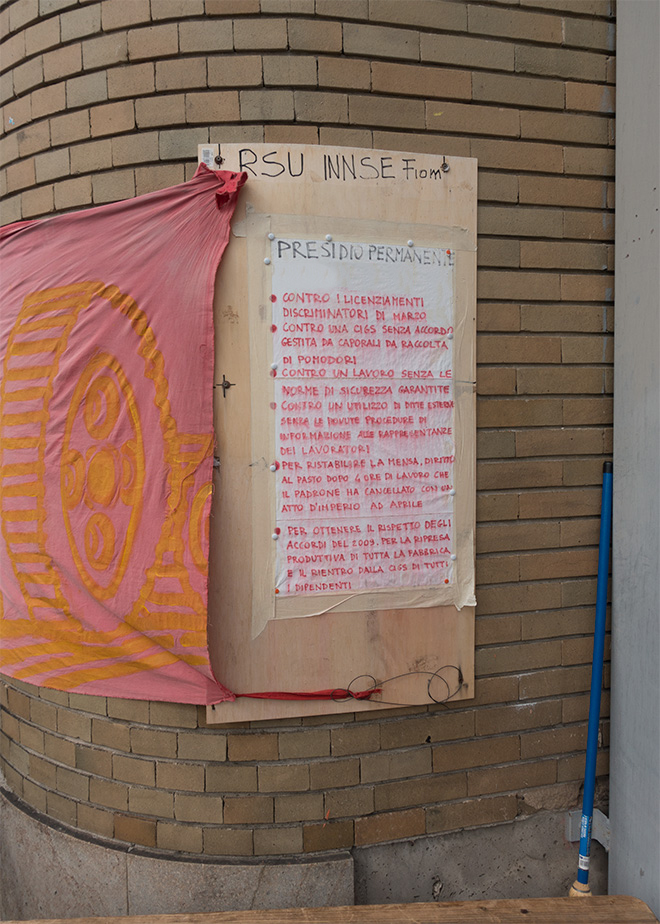 RSU INNSE Fiom
PRESIDIO PERMANENTE
CONTRO I LICENZIAMENTI
DISCRIMINATORI DI MARZO
CONTRO UNA CIGS SENZA ACCORDO
GESTITA DA CAPORALI DA RACCOLTA
DI POMODORI
CONTRO UN LAVORO SENZA LE
NORME DI SICUREZZA GARANTITE
CONTRO UN UTILIZZO DI DITTE ESTERNE
SENZA LE DOVUTE PROCEDURE DI
INFORMAZIONE ALLE RAPPRESENTANZE
DEI LAVORATORI
PER RISTABILIRE LA MENSA, DIRITTO
AL PASTO DOPO 4 ORE DI LAVORO CHE
IL PADRONE HA CANCELLATO CON UN
ATTO D'IMPERIO AD APRILE
PER OTTENERE IL RISPETTO DEGLI
ACCORDI DEL 2009. PER LA RIPRESA
PRODUTTIVA DI TUTTA LA FABBRICA
E IL RIENTRO DALLA CIGS DI TUTTI
I DIPENDENTI